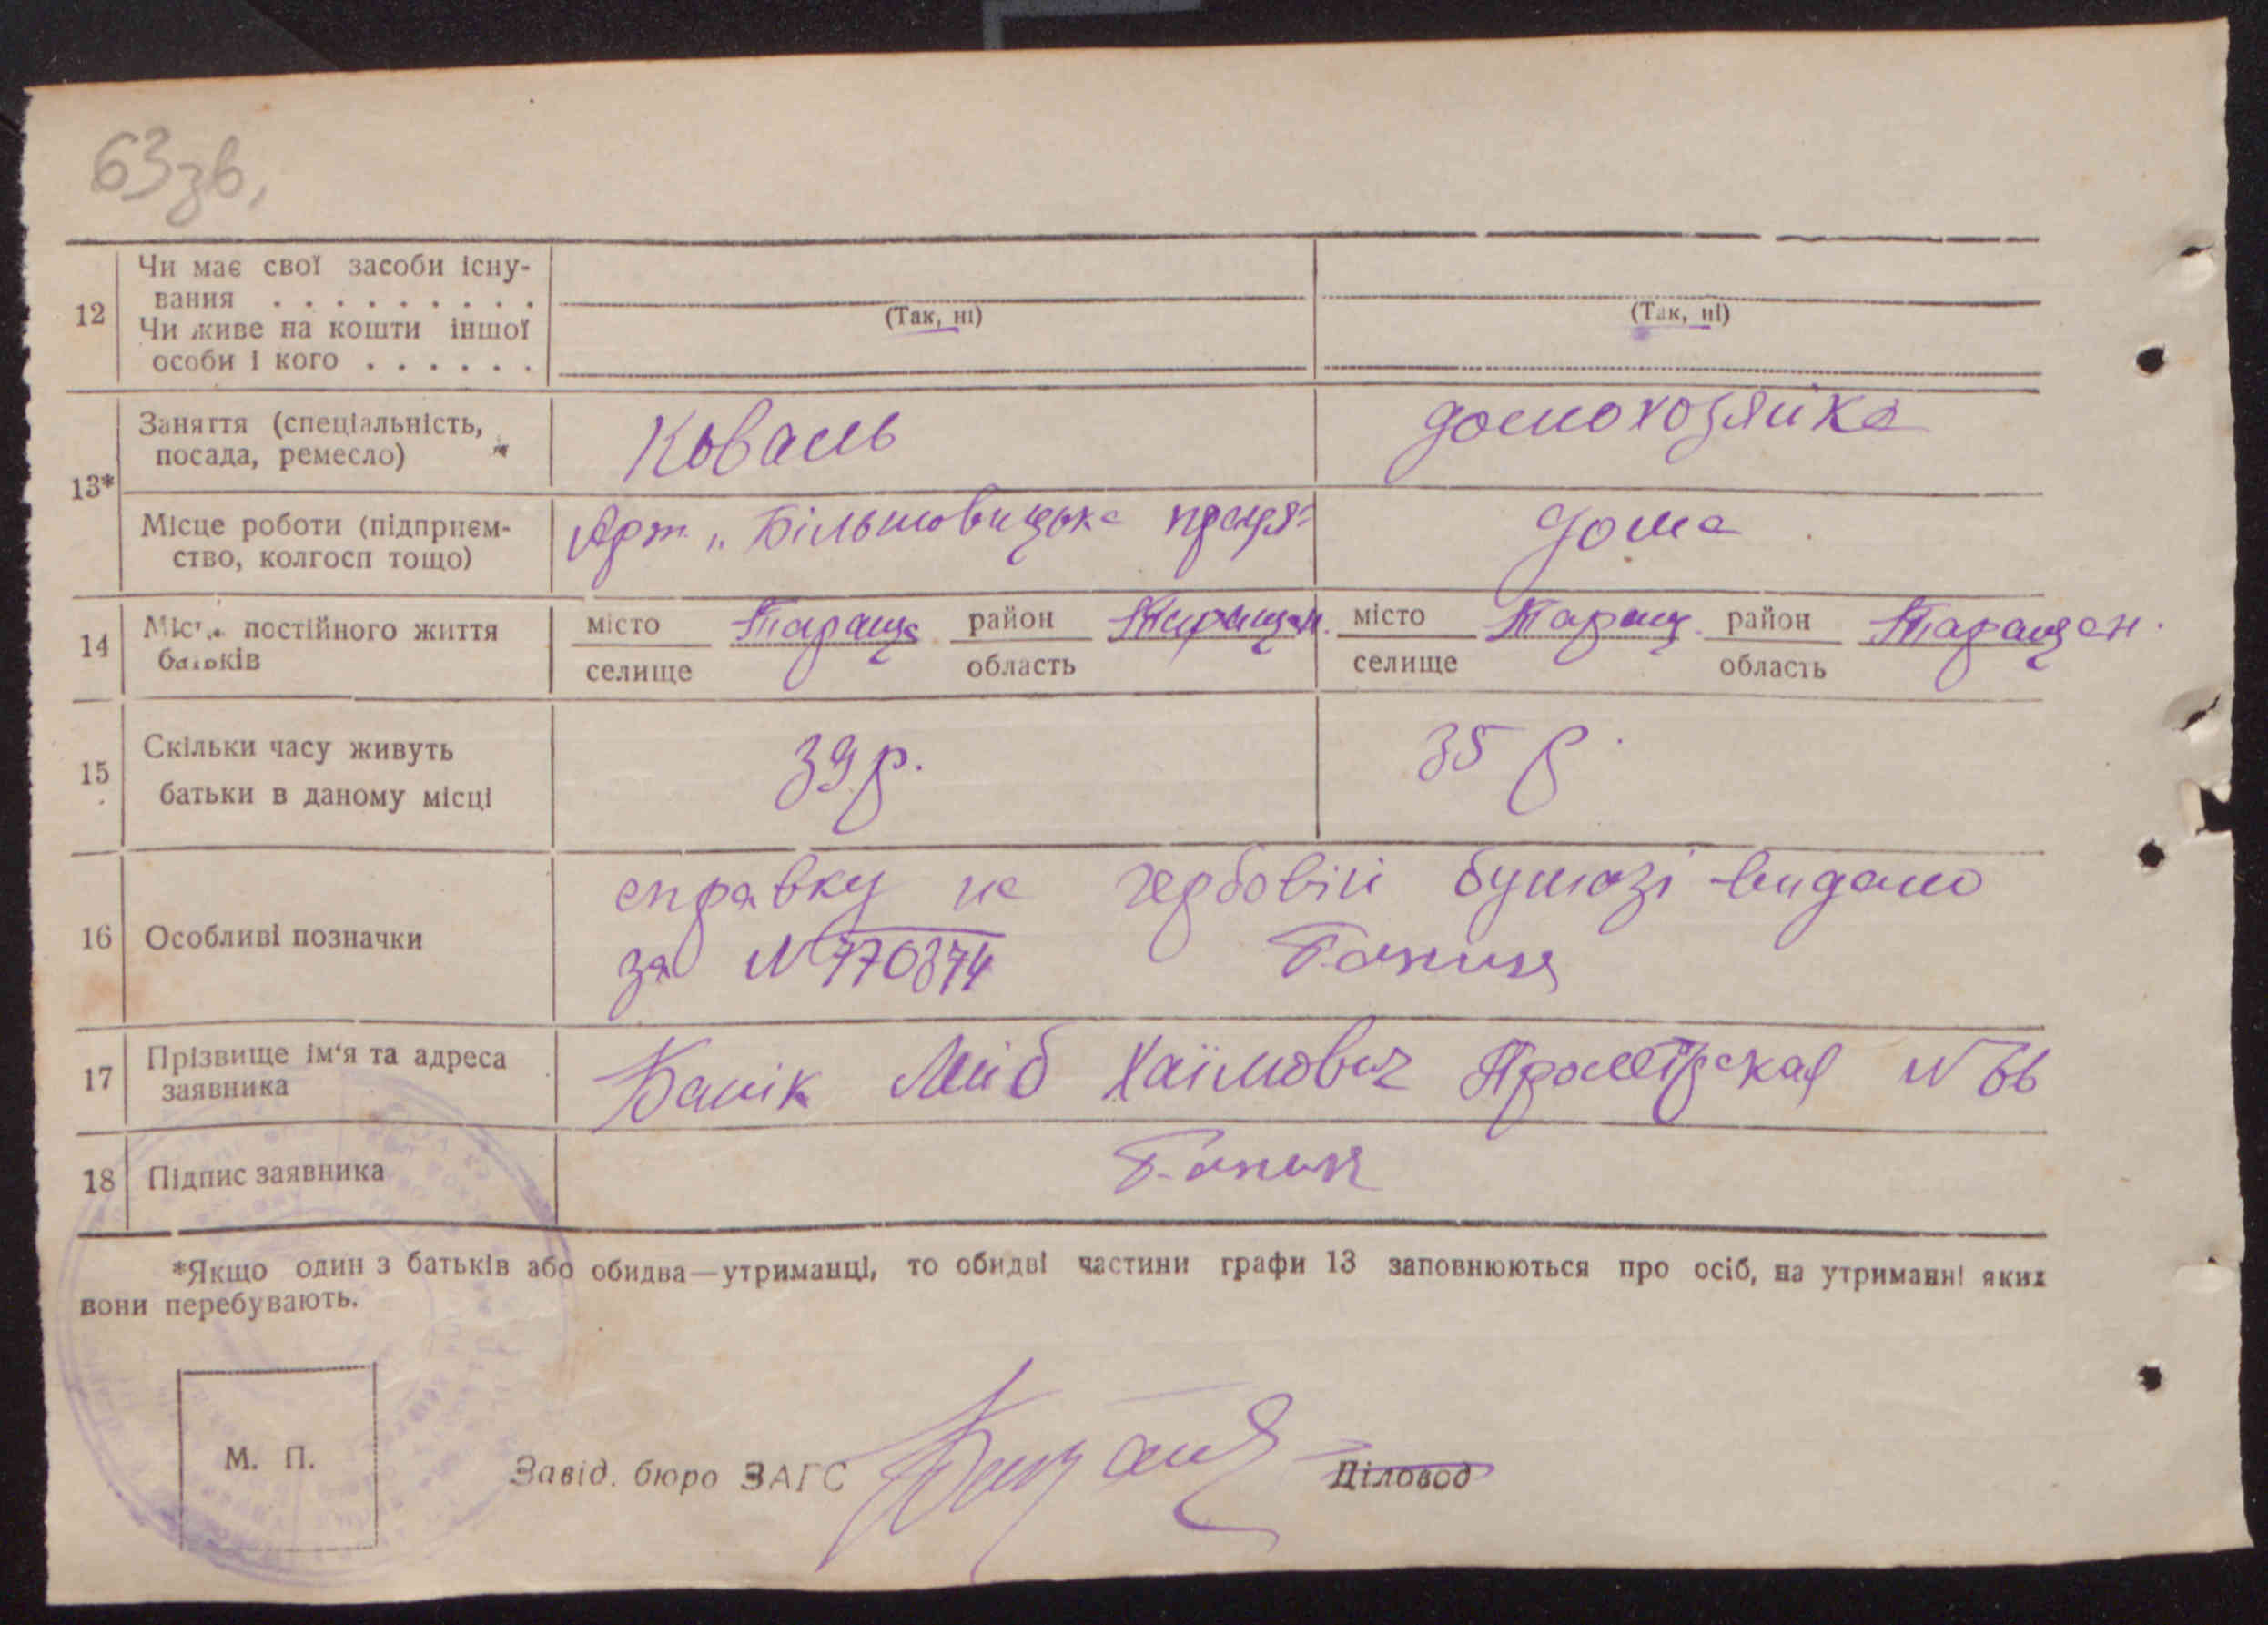 63зв,
12
Чи має свої засоби існу-
вання . . . . . . . . .
(Так, ні)
(Так, ні)
Чи живе на кошти іншої
особи і кого . . . . . .
13*
Заняття (спеціальність,
посада, ремесло)
Коваль
домохозяйка
Місце роботи (підприєм-
ство, колгосп тощо)
Арт. „Більшовицька праця"
дома
14
постійного життя
батьків
місто Тараща район Таращан.
селище область
місто Таращ. район Таращан.
селище область
15
Скільки часу живуть
батьки в даному місці
39 р.
35 р.
16
Особливі позначки
справку на гербовій бумазі видано
за N 770374
17
Прізвище ім'я та адреса
заявника
Банік Лейб Хаїмович N 66
18
Підпис заявника
*Якщо один з батьків або обидва—утриманці, то обидві частини графи 13 заповнюються про осіб, на утриманні яких
вони перебувають.
М. П.
Завід. бюро ЗАГС
Діловод